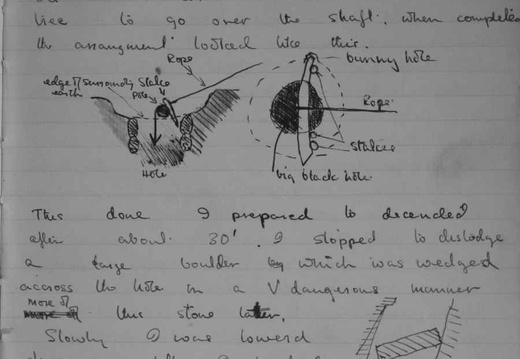 tree to go over the shaft. when completed
the arrangment looked like this.
Rope
bunny hole
edge of surrounding earth
Stake
Pole
Rope
Stakes
Hole
big black hole.
This done I prepared to decended
after about 30'. I stopped to dislodge
a large boulder which was wedged
accross the hole in a V dangerous manner
more of this stone later.
Slowly I was lowered